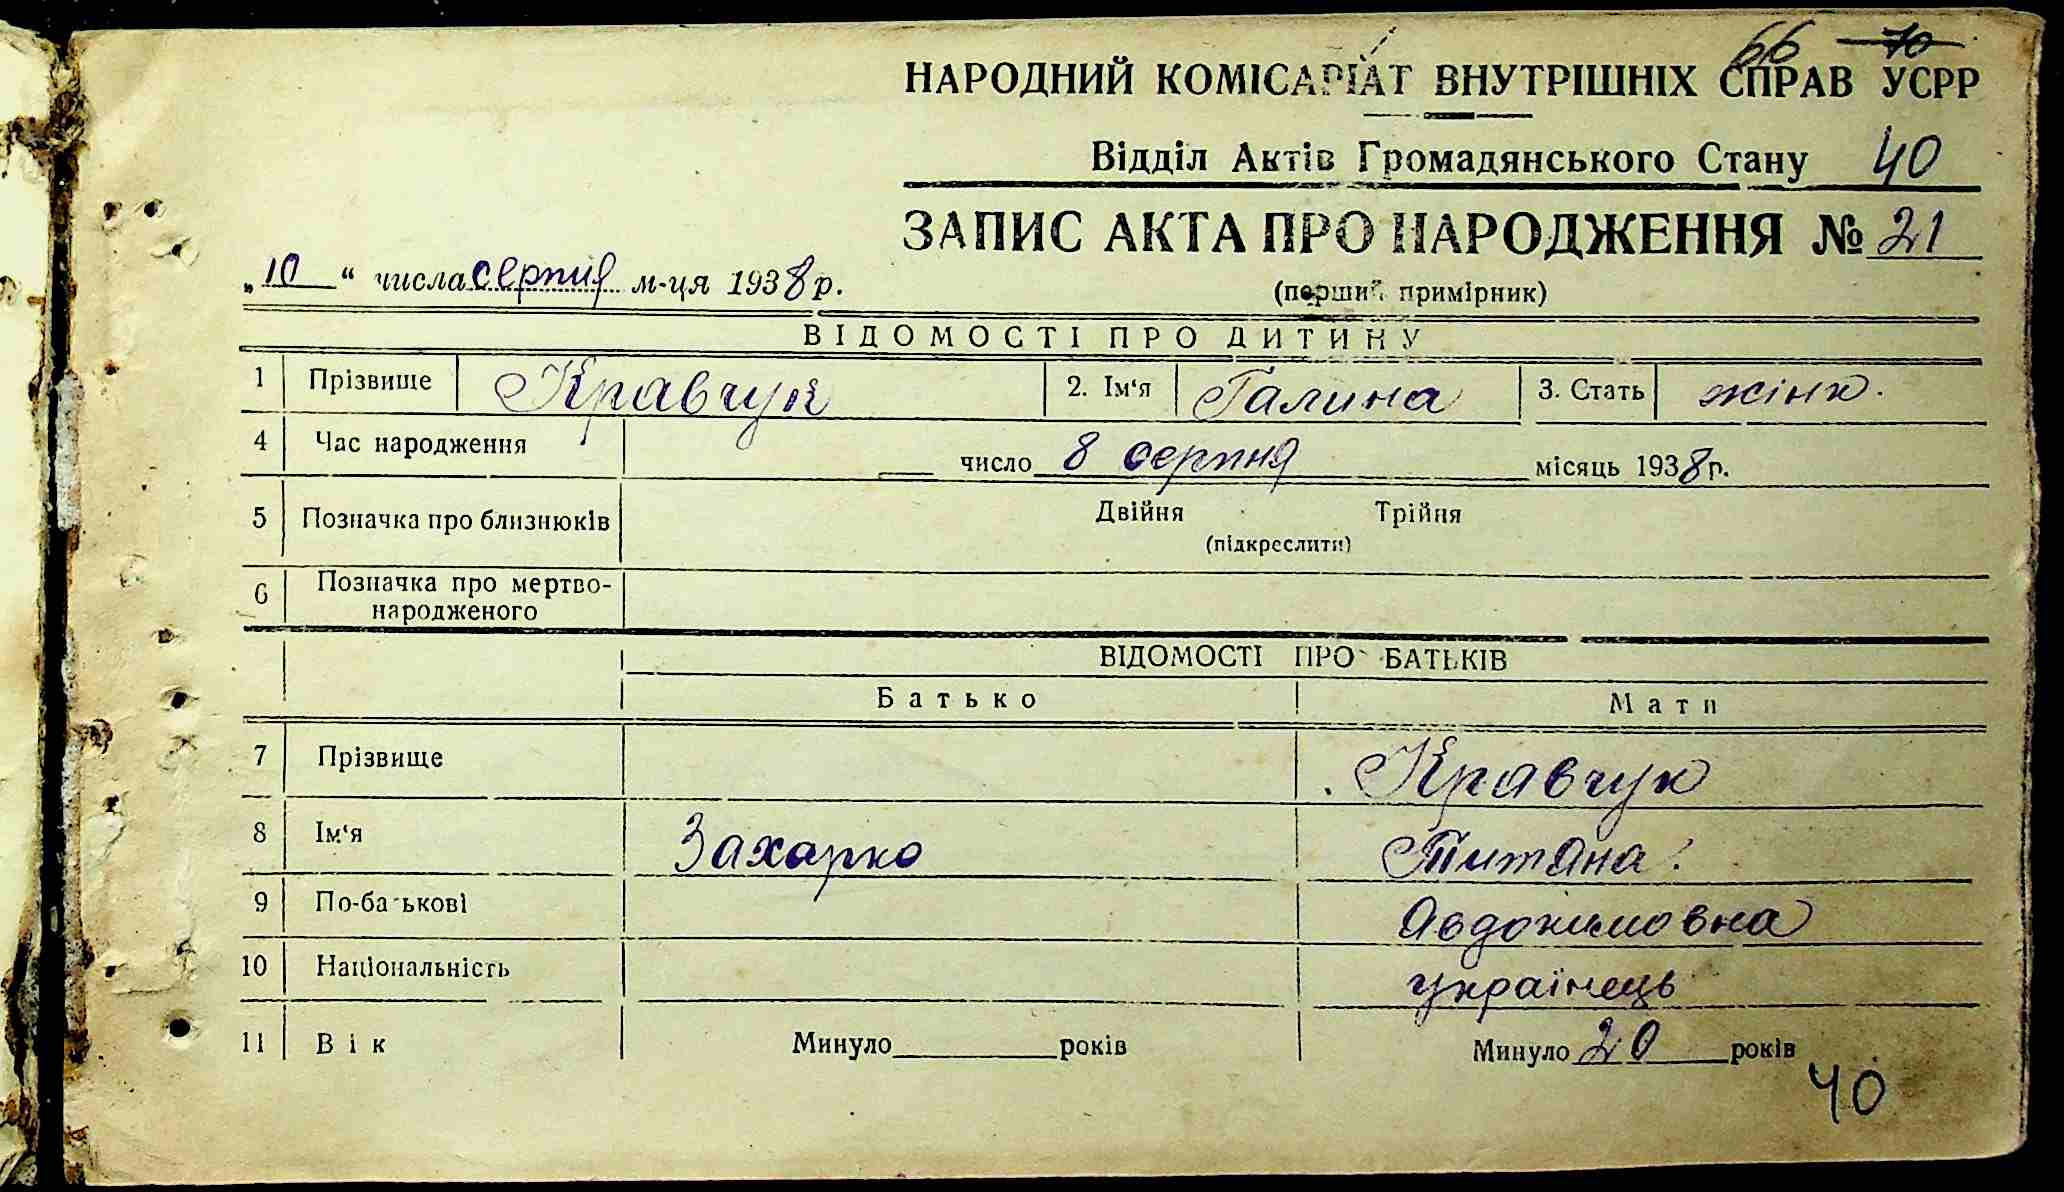 66 10
НАРОДНИЙ КОМІСАРІАТ ВНУТРІШНІХ СПРАВ УСРР
Відділ Актів Громадянського Стану 40
ЗАПИС АКТА ПРО НАРОДЖЕННЯ № 21
„10“ числа серпня м-ця 1938 р.
(перший примірник)
ВІДОМОСТІ ПРО ДИТИНУ
1 Прізвище Кравчук 2. Ім‘я Галина 3. Стать жінк.
4 Час народження число 8 серпня місяць 1938 р.
5 Позначка про близнюків Двійня Трійня
(підкреслити)
6 Позначка про мертво-
народженого
ВІДОМОСТІ ПРО БАТЬКІВ
Батько Мати
7 Прізвище Кравчук
8 Ім‘я Захарко Титяна
9 По-батькові Авдокимовна
10 Національність українець
11 Вік Минуло років Минуло 20 років
40